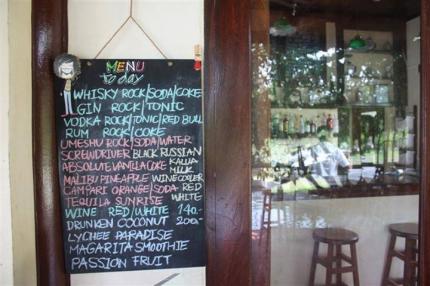 MENU
to day
WHISKY ROCK/SODA/COKE
GIN ROCK/TONIC
VODKA ROCK/TONIC/RED BULL
RUM ROCK/COKE
UMESHU ROCK/SODA/WATER
SCREWDRIVER BLACK RUSSIAN
ABSOLUTE VANILLA COKE KALUA MILK
MALIBU PINEAPPLE WINE COOLER
CAMPARI ORANGE/SODA RED
TEQUILA SUNRISE WHITE
WINE RED/WHITE 140.-
DRUNKEN COCONUT 200.-
LYCHEE PARADISE
MAGARITA SMOOTHIE
PASSION FRUIT